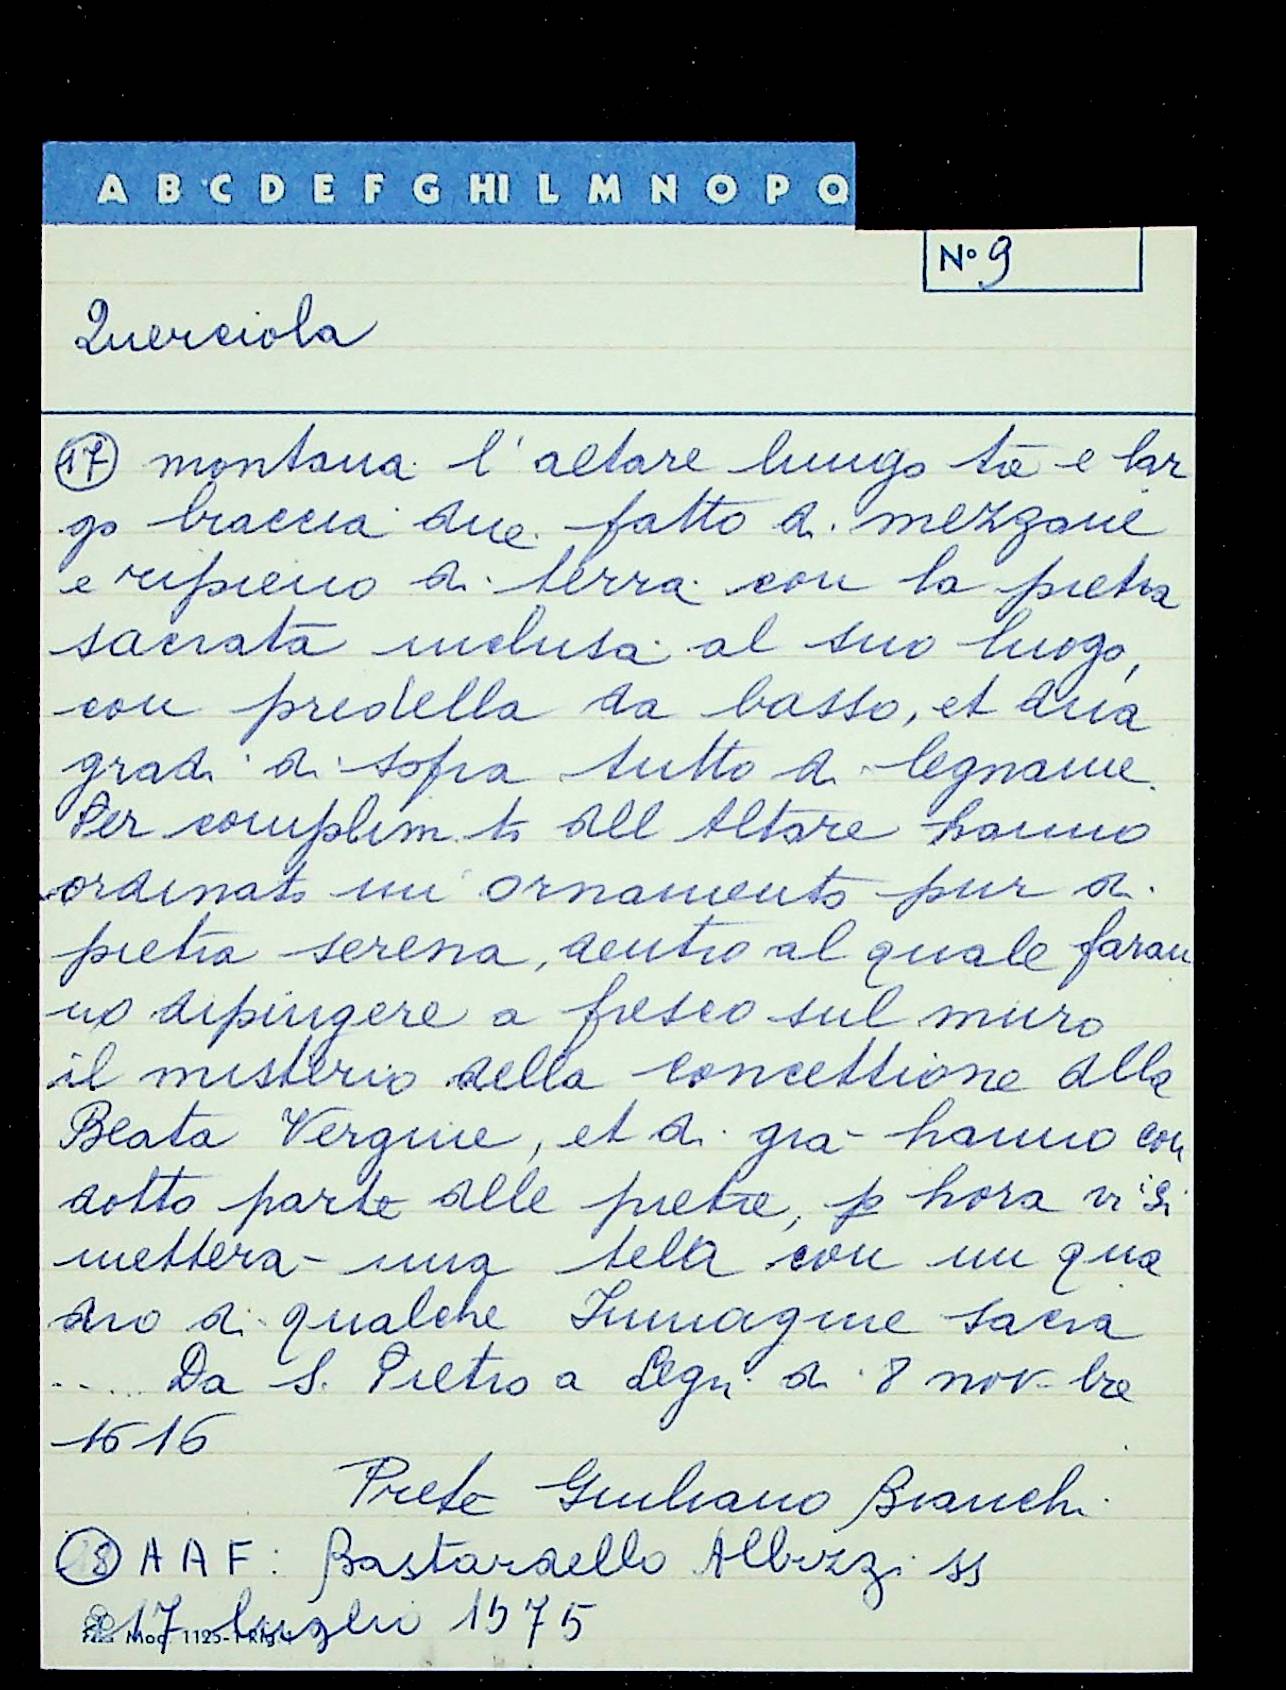 A B C D E F G HI L M N O P Q
N° 9
Querciola
17 montana l'altare lungo tre e lar
go braccia due fatto di mezzane
e ripieno di terra con la pietra
sacrata inclusa al suo luogo,
con predella da basso, et dua
gradi di sopra tutto di legname.
Per complim.to dell Altare hanno
ordinato un ornamento pur di
pietra serena, dentro al quale faran
no dipingere a fresco sul muro
il misterio della concettione della
Beata Vergine, et di gia hanno con
dotto parte delle pietre, p hora vi si
mettera una tela con un qua
dro di qualche Immagine sacra
.... Da S. Pietro a Legri di 8 novbre
1616
Prete Giuliano Bianchi
18 A A F: Bastardello Albizzi ss
17 luglio 1575
Mod. 1125-1 Rig.